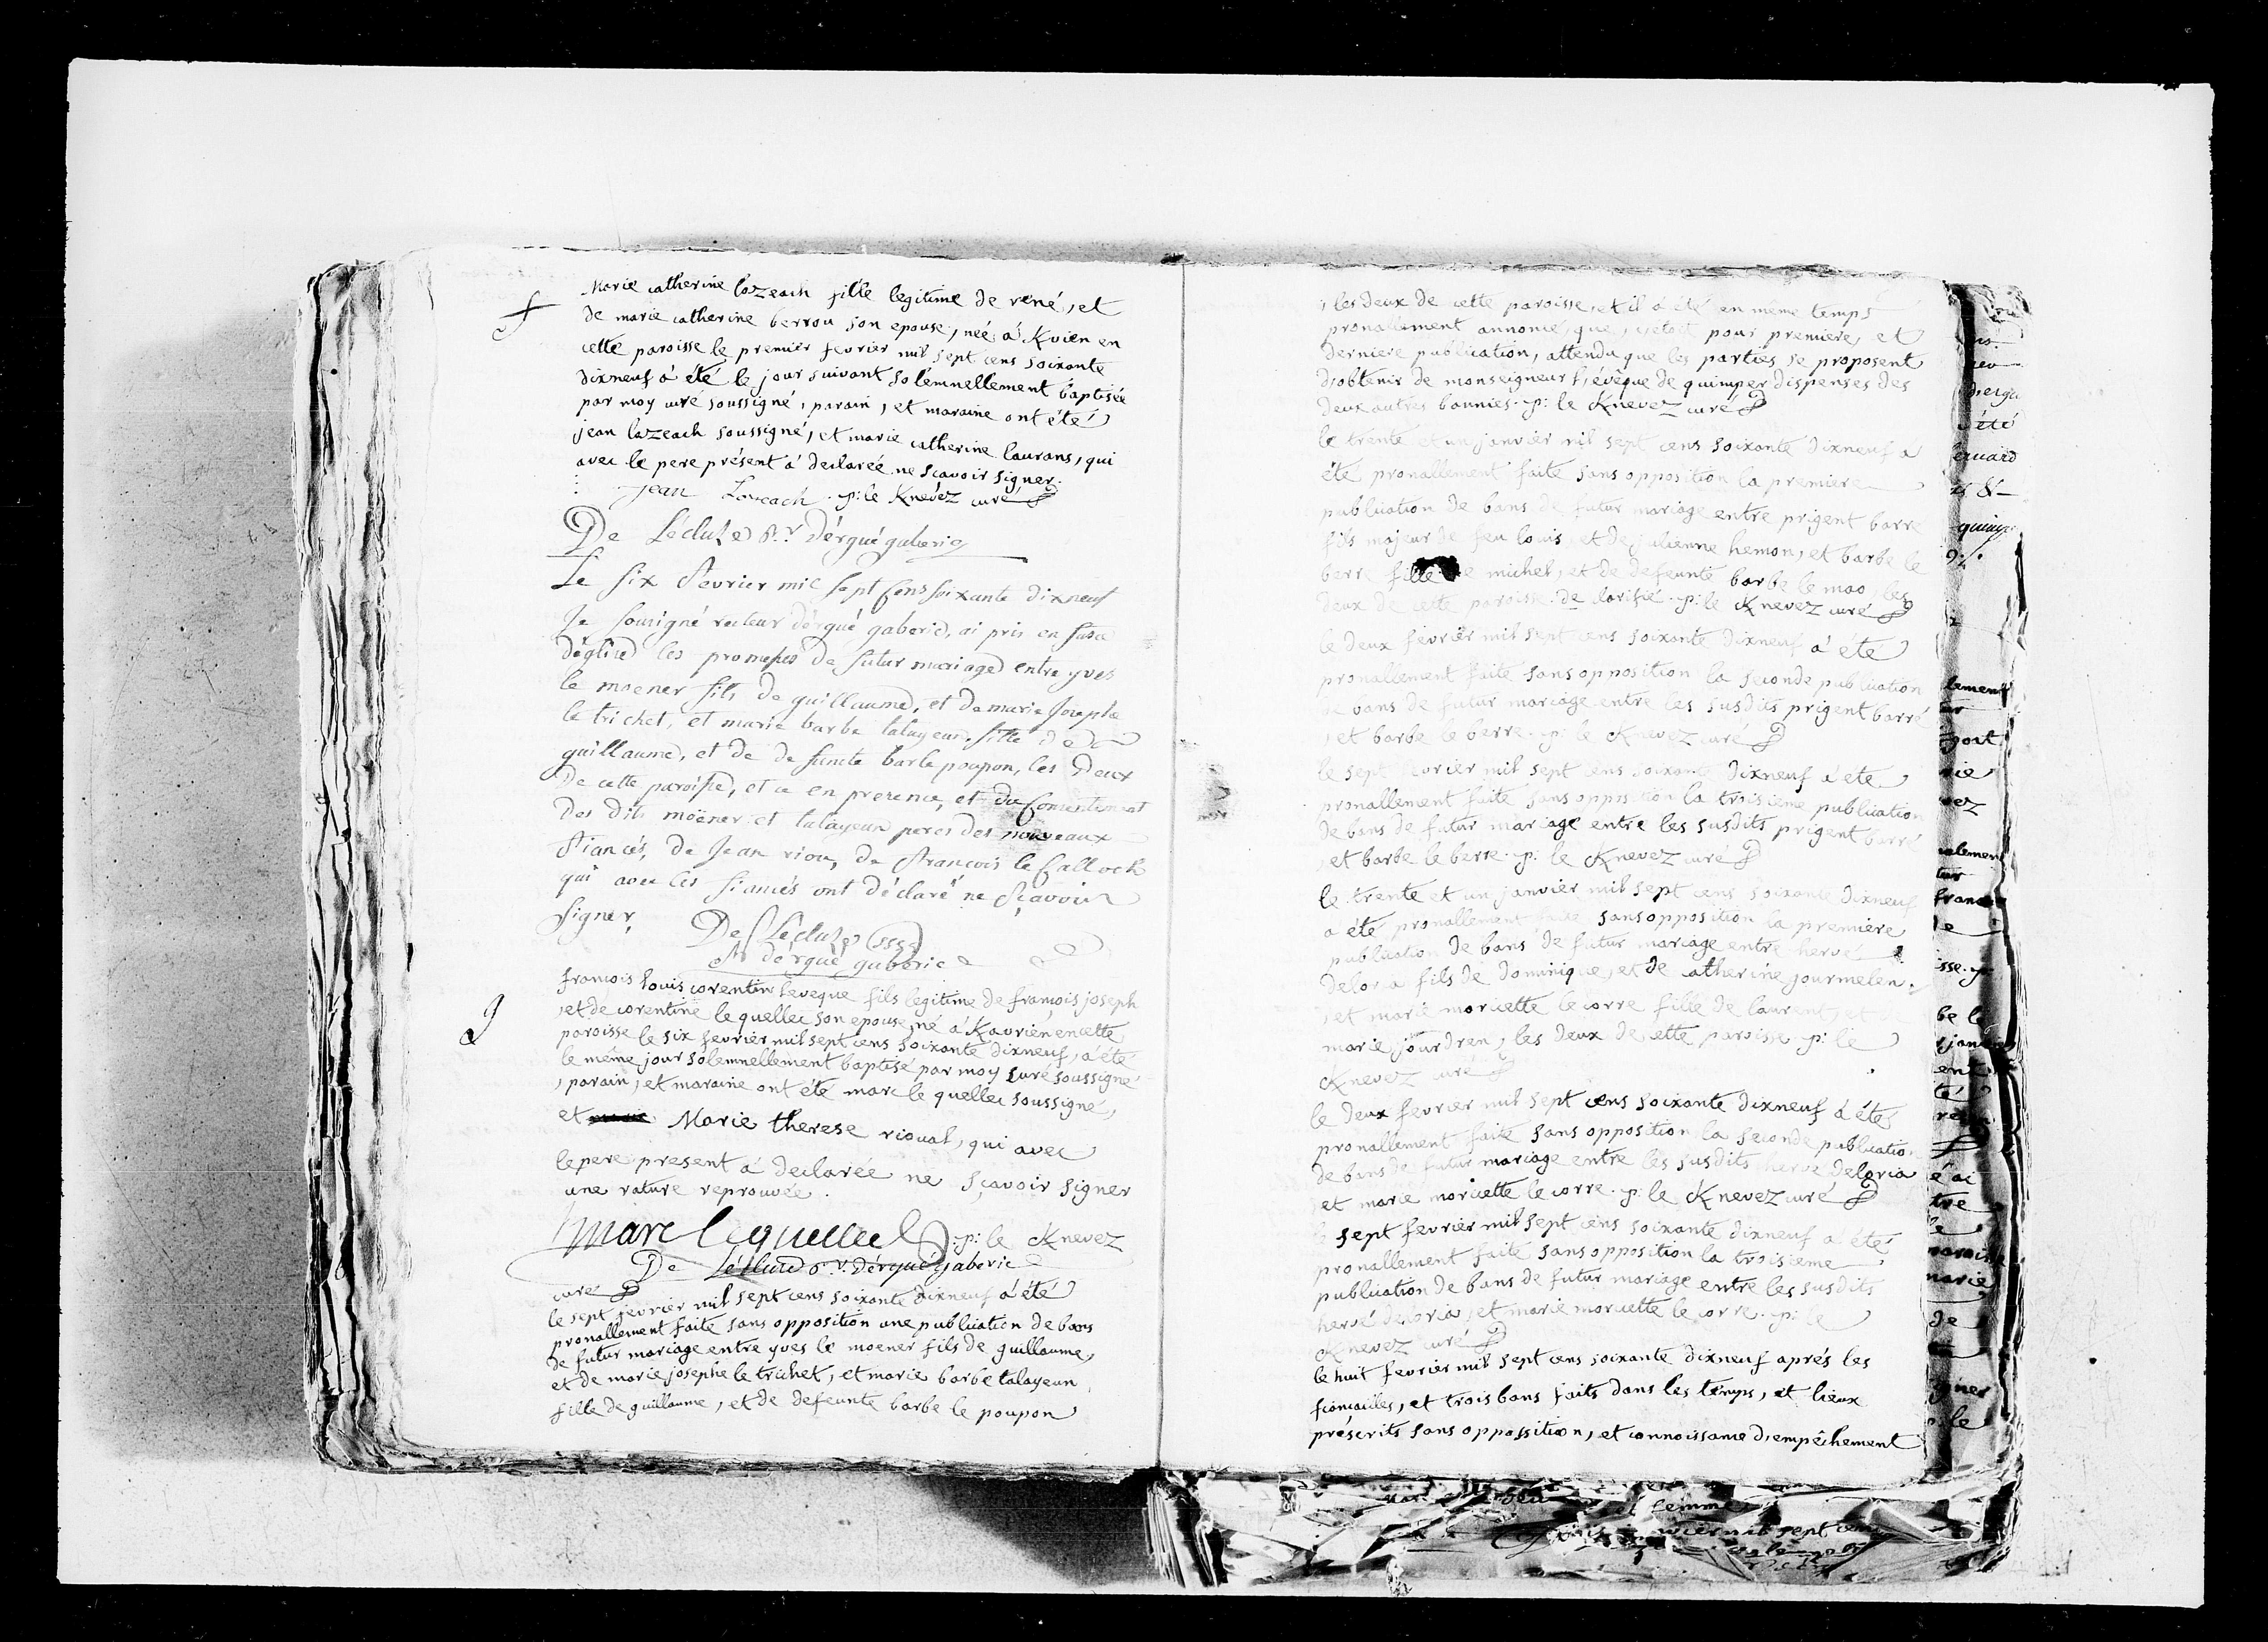 Marie catherine lozeach fille legitime de réné, et
de marie catherine berrou son epouse, née à Kvien en
cette paroisse le premier fevrier mil sept cens soixante
dixneuf à été le jour suivant solémnellement baptisée
par moy curé soussigné, parain, et maraine ont été
jean lazeach soussigné, et marie catherine laurans, qui
avec le pere présent à declarée ne scavoir signer.
jean Lozeach . p: le Knévez curé
De Lécluze Rr. d'érgué gaberic
Le six fevrier mil sept cens soixante dixneuf
Je soussigné recteur d'érgué gaberic, ai pris en face
d'église les promesses de futur mariage entre yves
le moener fils de guillaume, et de marie Josephe
le trichet, et marie barbe talayeun, fille de
guillaume, et de defuncte barbe poupon, les Deux
De cette paroisse, et ce en presence, et du consentement
des dits moëner et talayeun peres des nouveaux
fiancés, de Jean riou, de françois le Calloch
qui avec les fiancés ont déclaré ne sçavoir
signer,
De Lécluze
Rr d'érgué gaberic
françois louis corentin leveque fils legitime de françois joseph
, et de corentine le quellec son epouse, né à Kaurien en cette
paroisse le six fevrier mil sept cens soixante dixneuf, a été
le même jour solemnellement baptisé par moy curé soussigné
, parain, et maraine ont été marc le quellec soussigné,
et Marie therese rioual, qui avec
le pere present à declarée ne sçavoir signer
une rature reprouvée.
Marc lequellec . p: le Knevez
De Lécluze Rr. d'érgué gaberic
curé
le sept fevrier mil sept cens soixante dixneuf à été
pronallement faite sans opposition une publication de bans
de futur mariage entre yves le moener fils de guillaume,
et de marie josephe le trichet, et marie barbe talayeun
fille de guillaume, et de defeunte barbe le poupon
, les deux de cette paroisse, et il à été en même temps
pronallement annoncé, que, c'etoit pour premiere, et
derniere publication, attendu que les parties se proposent
d'obtenir de monseigneur l'évêque de quimper dispenses des
deux autres bannies. p: le Knevez curé
le trente et un janvier mil sept cens soixante dixneuf à
été pronallement faite sans opposition la premiere
publication de bans de futur mariage entre prigent barre
fils majeur de feu louis, et de julienne hemon, et barbe le
berre fille de michel, et de defeunte barbe le mao, les
deux de cette paroisse. de clarifié. p: le Knevez curé
le deux fevrier mil sept cens soixante dixneuf à été
pronallement faite sans opposition la seconde publication
de bans de futur mariage entre les susdits prigent barré
, et barbe le berre. p: le Knevez curé
le sept fevrier mil sept cens soixante dixneuf à été
pronallement faite sans opposition la troisieme publication
de bans de futur mariage entre les susdits prigent barré
, et barbe le berre. p: le Knevez curé
le trente et un janvier mil sept cens soixante dixneuf
a été pronallement faite sans opposition la première
publication de bans de futur mariage entre hervé
deloria fils de dominique, et de catherine jourmelen.
, et marie moricette le corre fille de laurent, et
marie jourdren, les deux de cette paroisse. p: le
Knevez curé
le deux fevrier mil sept cens soixante dixneuf à été
pronallement faite sans opposition la seconde publication
de bans de futur mariage entre les susdits hervé deloria
et marie moricette le corre. p: le Knevez curé
le sept fevrier mil sept cens soixante dixneuf a été
pronallement faite sans opposition la troisieme
publication de bans de futur mariage entre les susdits
hervé deloria, et marie moricette le corre. p: le
Knevez curé
le huit fevrier mil sept cens soixante dixneuf aprés les
fiancailles, et trois bans faits dans les temps, et lieux
préscrits sans oppossition, et connoissance d'empêchement